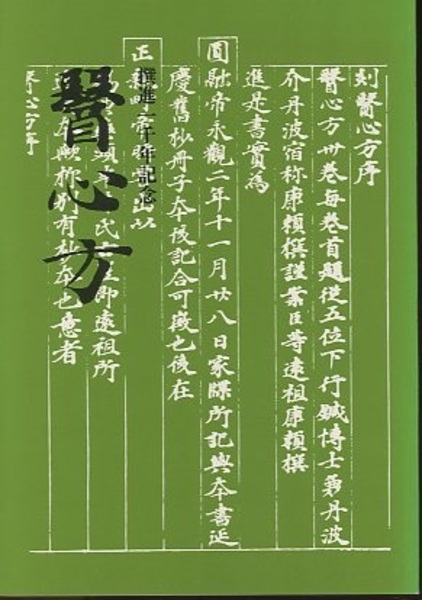 刻醫心方序
醫心方卅卷每卷首題從五位下行鍼博士兼丹波
介丹波宿祢康頼撰謹案臣等遠祖康頼撰
進是書實爲
圓融帝永觀二年十一月廿八日家牒所記與本書延
慶舊抄册子本後記合可徵也後在
撰進一千年記念
正 帝時 出以
氏 即遠祖所
醫心方
本歟称別有 本也意者
心方序